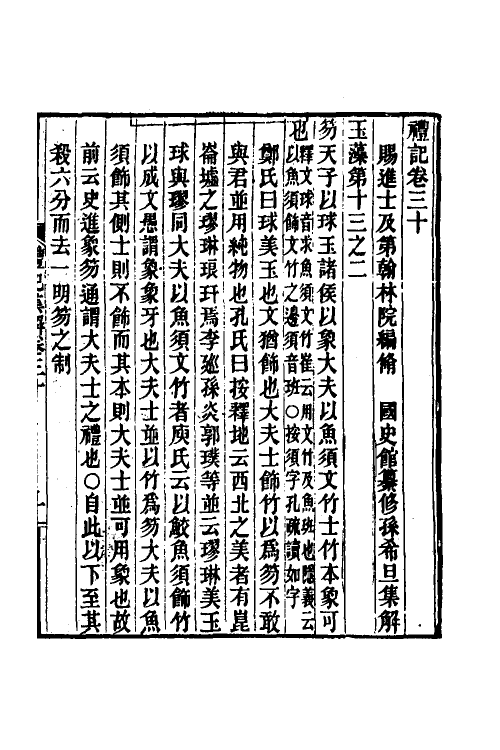 禮記卷三十
賜進士及第翰林院編脩　國史館纂修孫希旦集解
玉藻第十三之二
笏天子以球玉諸侯以象大夫以魚須文竹士竹本象可
也釋文球音求魚須文竹崔云用文竹及魚班也隱義云
以魚須飾文竹之邊須音班○按須字孔疏讀如字
鄭氏曰球美玉也文猶飾也大夫士飾竹以爲笏不敢
與君並用純物也孔氏曰按釋地云西北之美者有崑
崙墟之璆琳琅玕焉李廵孫炎郭璞等並云璆琳美玉
球與璆同大夫以魚須文竹者庾氏云以鮫魚須飾竹
以成文愚謂象象牙也大夫士並以竹爲笏大夫以魚
須飾其側士則不飾而其本則大夫士並可用象也故
前云史進象笏通謂大夫士之禮也○自此以下至其
殺六分而去一明笏之制